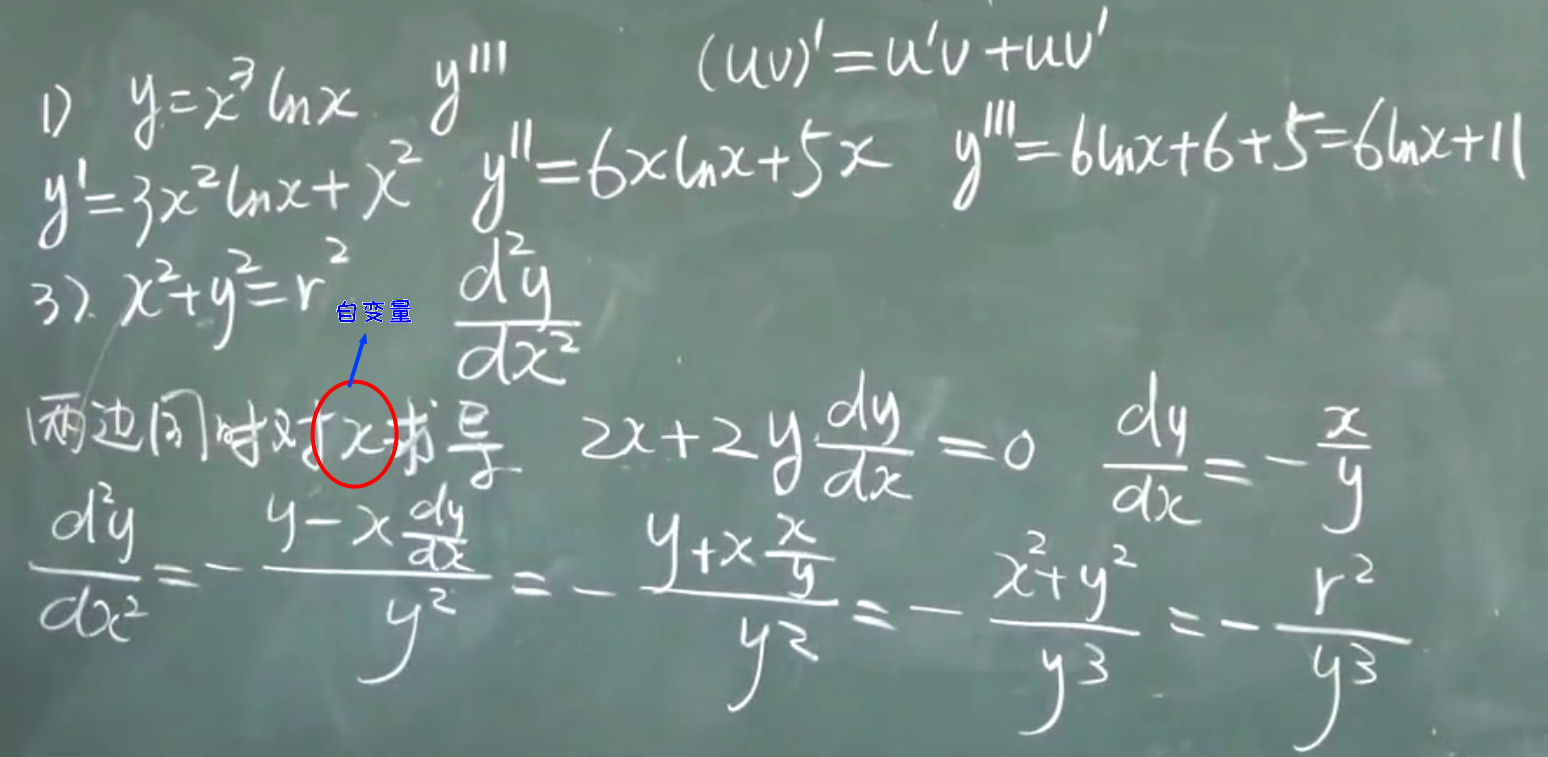 (uv)' = u'v + uv'
1) y = x³ lnx y'''
y' = 3x² lnx + x² y'' = 6x lnx + 5x y''' = 6lnx + 6 + 5 = 6lnx + 11
3). x² + y² = r² d²y/dx²
自变量
两边同时对x求导 2x + 2y dy/dx = 0 dy/dx = - x/y
d²y/dx² = - (y - x dy/dx)/y² = - (y + x x/y)/y² = - (x² + y²)/y³ = - r²/y³